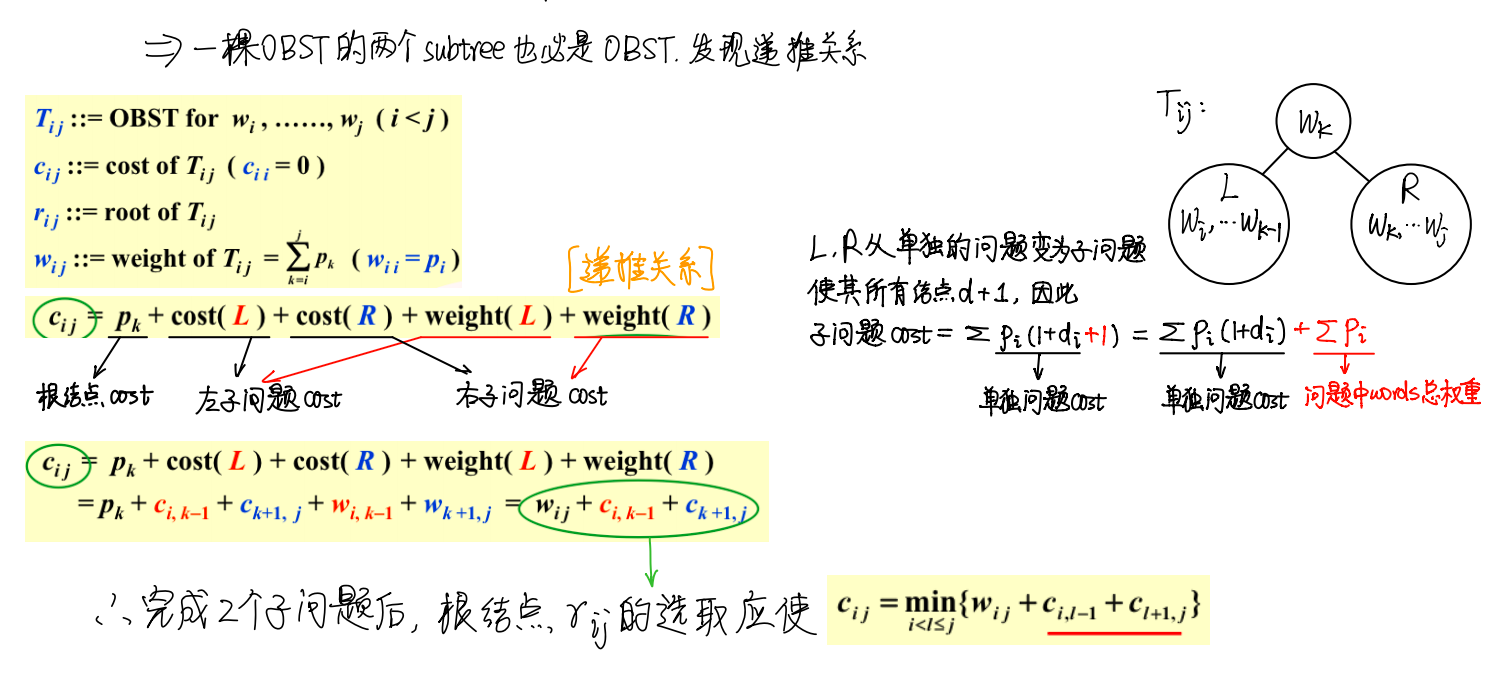 ⇒ 一棵OBST的两个subtree也必是OBST. 发现递推关系
T_{ij} ::= OBST for w_i , ……, w_j ( i < j )
c_{ij} ::= cost of T_{ij} ( c_{ii} = 0 )
r_{ij} ::= root of T_{ij}
w_{ij} ::= weight of T_{ij} = \sum_{k=i}^{j} p_k ( w_{ii} = p_i )
[递推关系]
c_{ij} = p_k + cost( L ) + cost( R ) + weight( L ) + weight( R )
根结点cost
左子问题cost
右子问题cost
T_{ij}:
W_k
L
W_i, ··· W_{k-1}
R
W_k, ··· W_j
L, R从单独的问题变为子问题
使其所有结点d+1, 因此
子问题cost = Σ p_i(1+d_i+1) = Σ p_i(1+d_i) + Σ p_i
单独问题cost
单独问题cost
问题中words总权重
c_{ij} = p_k + cost( L ) + cost( R ) + weight( L ) + weight( R )
= p_k + c_{i, k–1} + c_{k+1, j} + w_{i, k–1} + w_{k+1, j} = w_{ij} + c_{i, k–1} + c_{k+1, j}
∴ 完成2个子问题后, 根结点r_{ij}的选取应使 c_{ij} = \min_{i<l≤j}{w_{ij} + c_{i,l–1} + c_{l+1,j}}